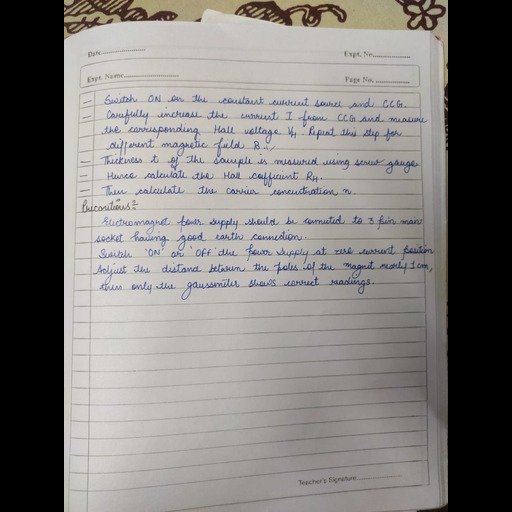 Date
Expt. No.
Expt. Name
Page No.
— Switch ON on the constant current source and CCG.
— Carefully increase the current I from CCG and measure
the corresponding Hall voltage VH. Repeat this step for
different magnetic field B.
— Thickness t of the sample is measured using screw gauge
— Hence calculate the Hall coefficient RH.
— Then calculate the carrier concentration n.
Precautions:-
Electromagnet power supply should be connected to 3 pin main
socket having good earth connection.
Switch 'ON' or 'OFF' the power supply at zero current position
Adjust the distance between the poles of the magnet nearly 1 cm,
then only the gaussmeter shows correct readings.
Teacher's Signature